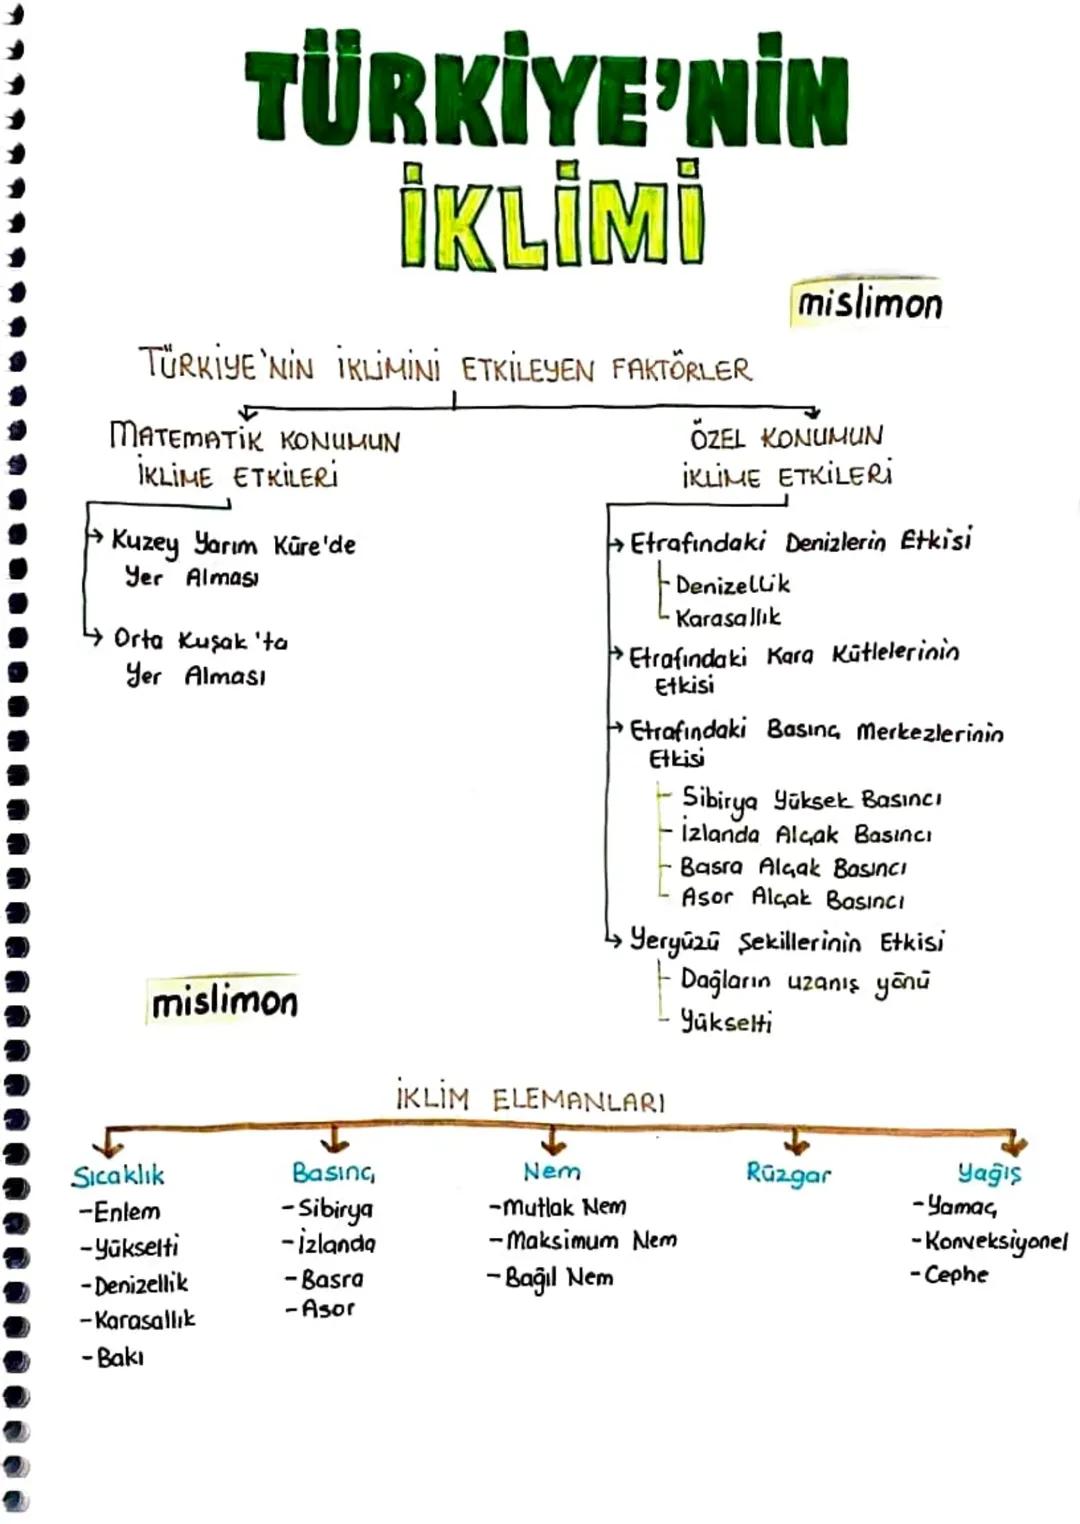 TÜRKİYE'NİN
İKLİMİ
mislimon
TÜRKİYE'NİN İKLİMİNİ ETKİLEYEN FAKTÖRLER
MATEMATİK KONUMUN
İKLİME ETKİLERİ
→ Kuzey Yarım Küre'de
Yer Alması
→ Orta Kuşak'ta
Yer Alması
ÖZEL KONUMUN
İKLİME ETKİLERİ
→ Etrafındaki Denizlerin Etkisi
- Denizellik
- Karasallık
→ Etrafındaki Kara Kütlelerinin
Etkisi
→ Etrafındaki Basınç Merkezlerinin
Etkisi
- Sibirya Yüksek Basıncı
- İzlanda Alçak Basıncı
- Basra Alçak Basıncı
- Asor Alçak Basıncı
→ Yeryüzü Şekillerinin Etkisi
- Dağların uzanış yönü
- Yükselti
mislimon
İKLİM ELEMANLARI
Sıcaklık
-Enlem
-Yükselti
-Denizellik
-Karasallık
-Bakı
Basınç
-Sibirya
-İzlanda
-Basra
-Asor
Nem
-Mutlak Nem
-Maksimum Nem
-Bağıl Nem
Rüzgar
Yağış
-Yamaç
-Konveksiyonel
-Cephe